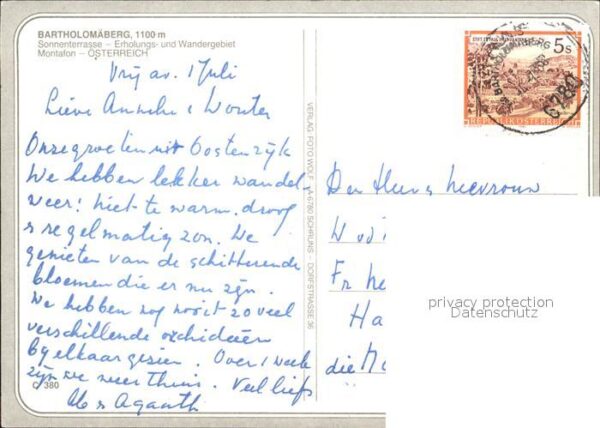 BARTHOLOMÄBERG, 1100 m
Sonnenterrasse – Erholungs- und Wandergebiet
Montafon – ÖSTERREICH
Vrij av. 1 Juli
Lieve Anneke & Wouter
Onze groeten uit Oostenrijk
We hebben lekker wandel-
weer! Niet te warm, droog
& regelmatig zon. We
genieten van de schitterende
bloemen die er nu zijn.
We hebben nog nooit zoveel
verschillende orchideeën
by elkaar gezien. Over 1 week
zijn we weer thuis. Veel liefs
& Agaath
380
VERLAG FOTO WOLF A-6780 SCHRUNS - DORFSTRASSE 36
5 S
REPUBLIK ÖSTERREICH
BARTHOLOMÄBERG
6780
Den Heer & Mevrouw
W
Fr
Ha
die
privacy protection
Datenschutz